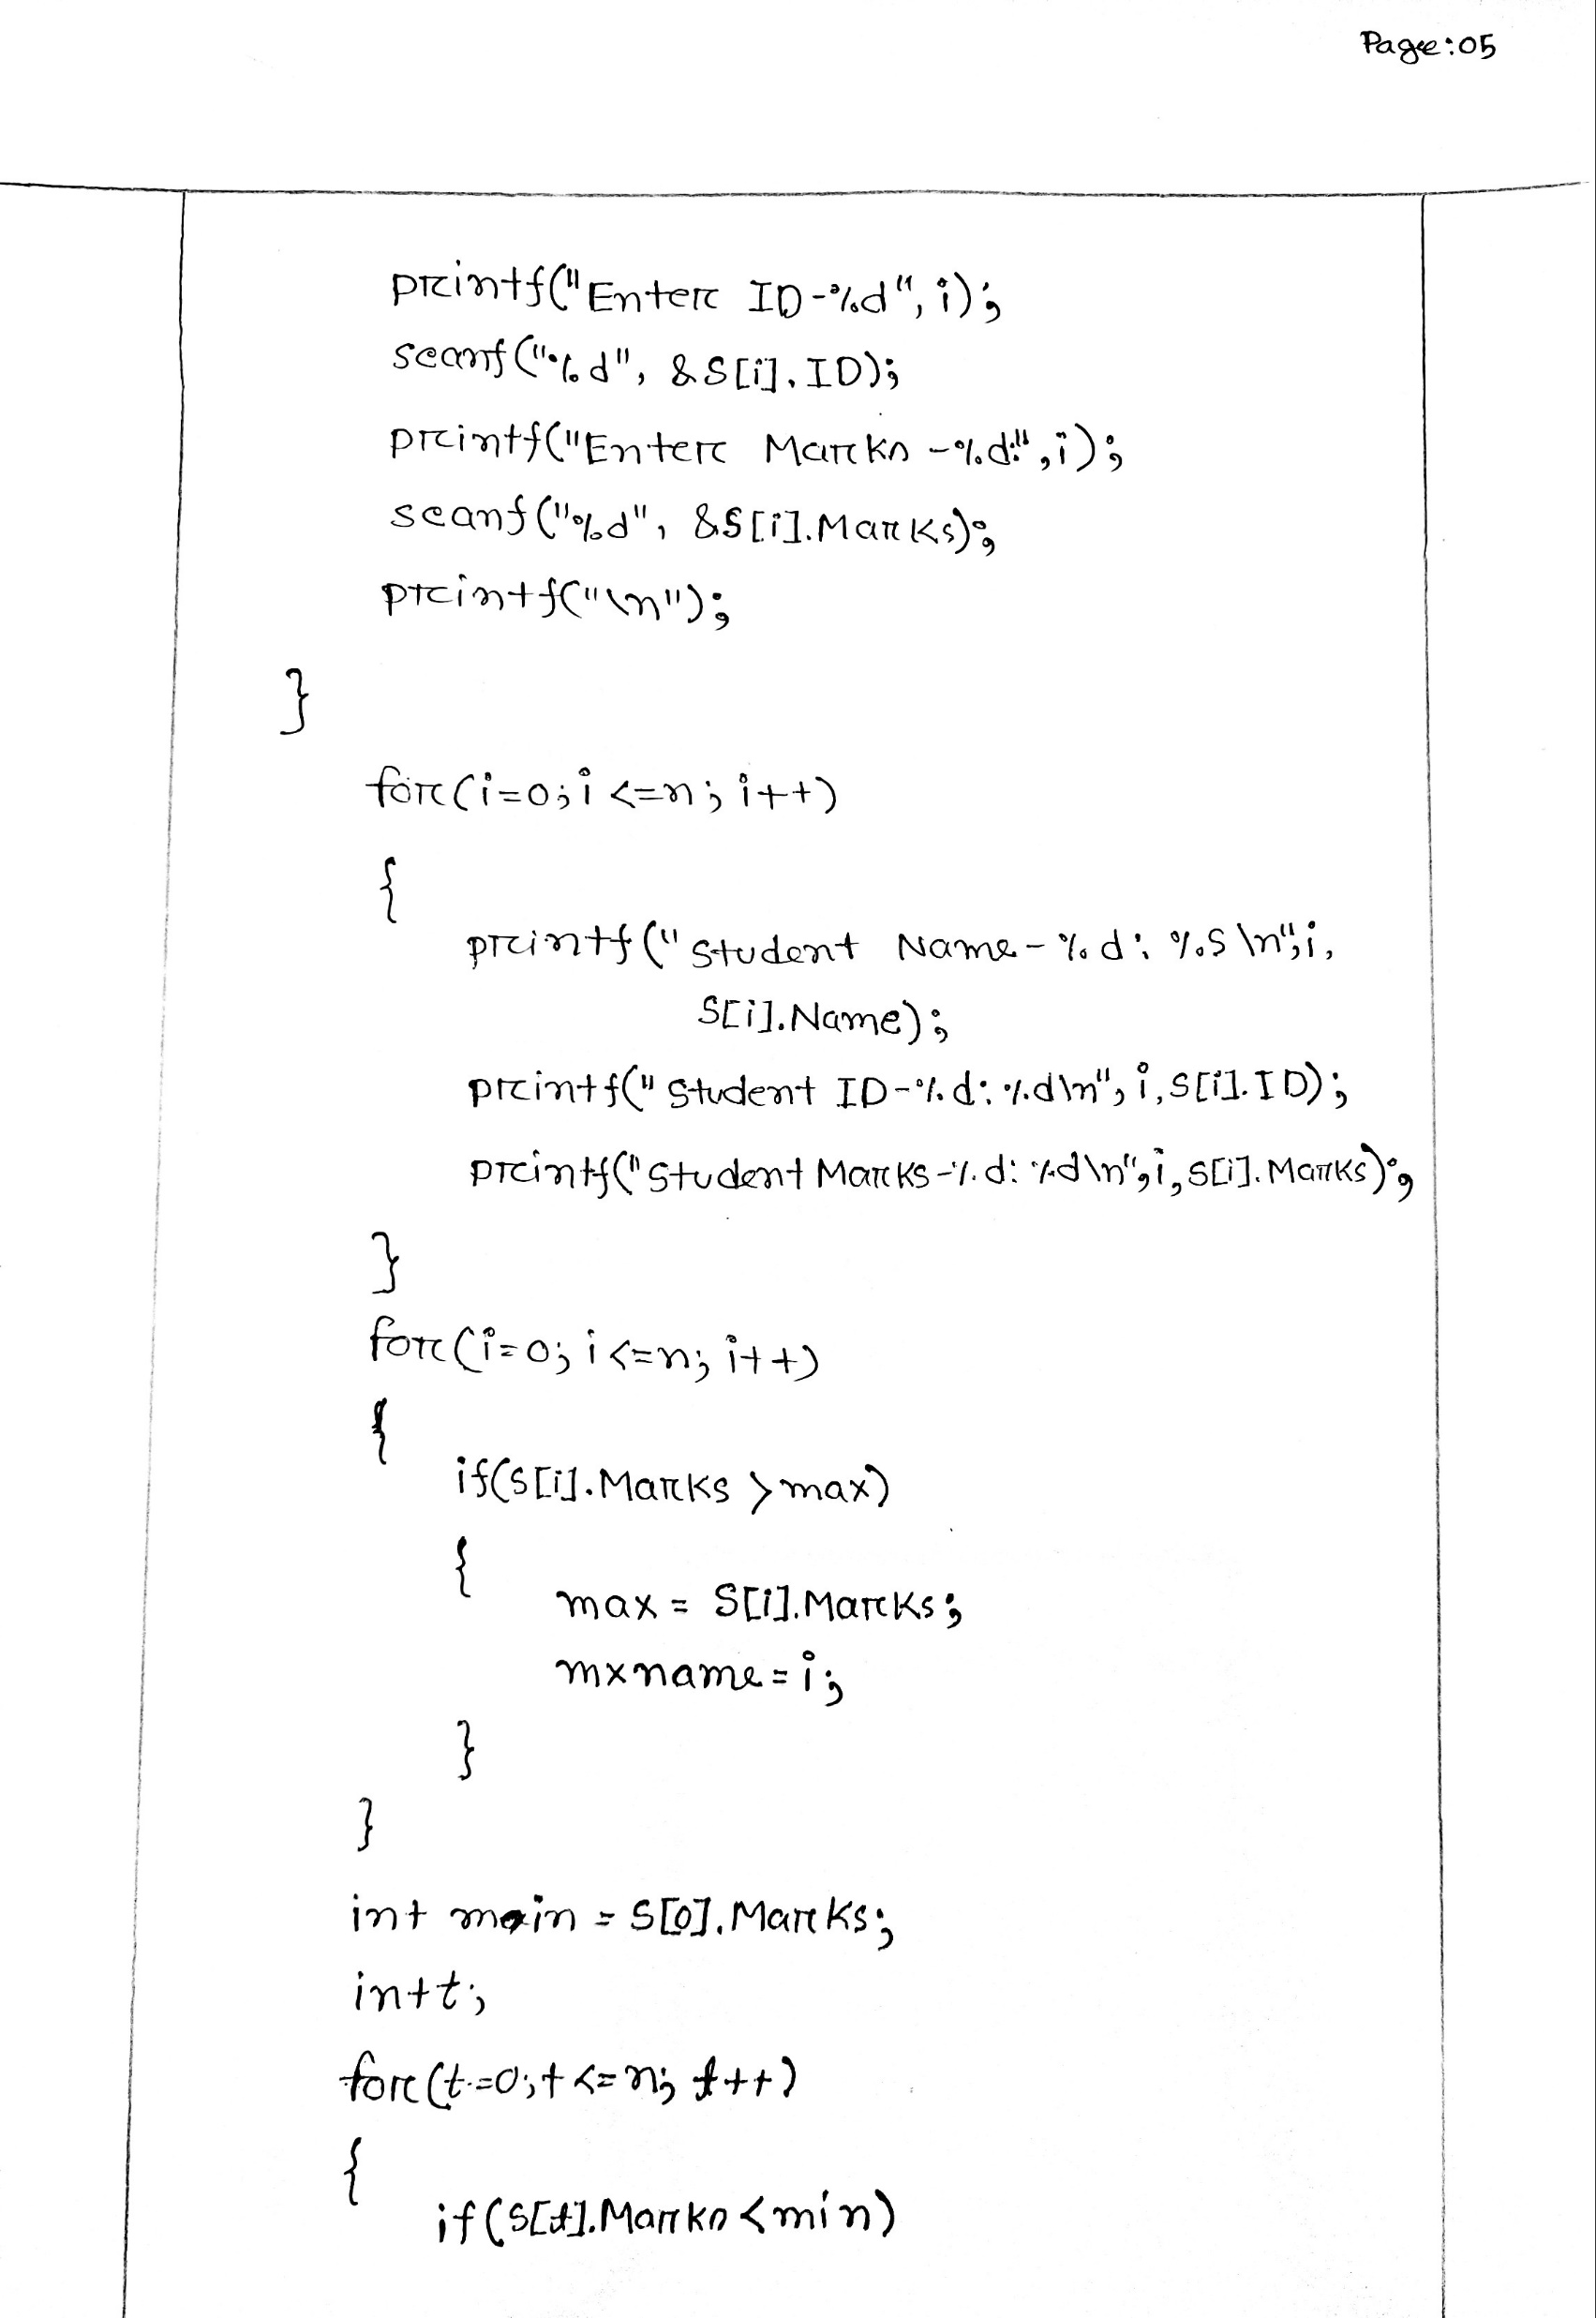 Page:05
printf("Enter ID-%d", i);
scanf("%d", &S[i].ID);
printf("Enter Marks -%d:", i);
scanf("%d", &S[i].Marks);
printf("\n");
}
for(i=0; i <=n; i++)
{
printf("Student Name-%d: %s \n", i,
S[i].Name);
printf("Student ID-%d: %d\n", i, S[i].ID);
printf("Student Marks-%d: %d\n", i, S[i].Marks);
}
for(i=0; i<=n; i++)
{
if(S[i].Marks > max)
{
max = S[i].Marks;
mxname = i;
}
}
int main = S[0].Marks;
int t;
for(t=0; t <= n; t++)
{
if(S[t].Marks < min)